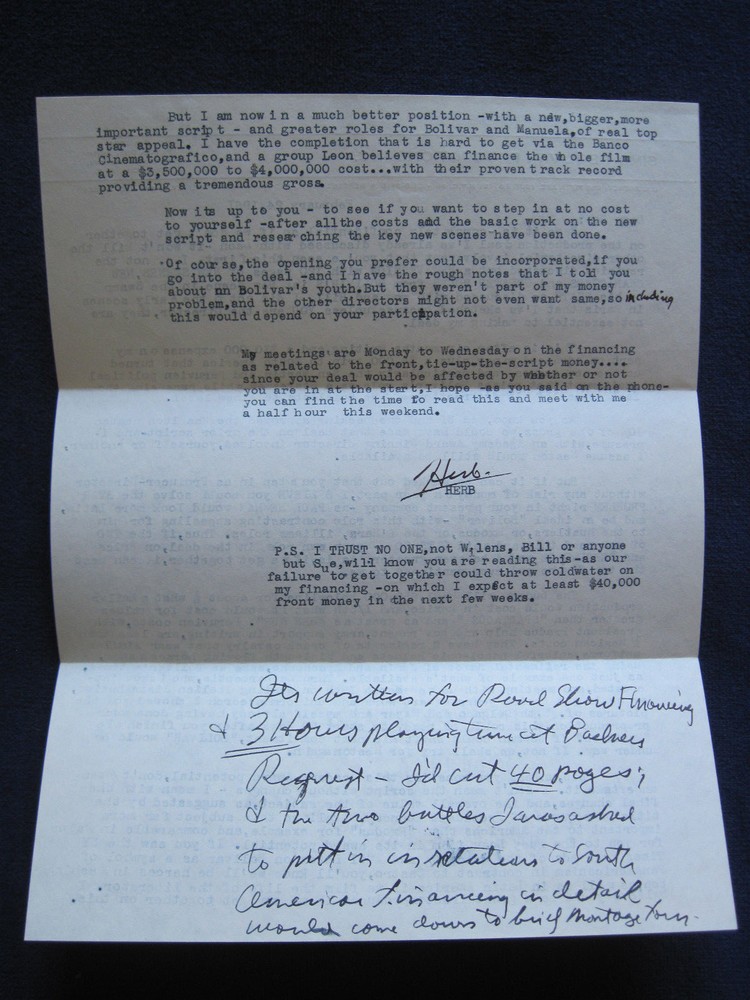 But I am now in a much better position -with a new,bigger,more
important script - and greater roles for Bolivar and Manuela,of real top
star appeal. I have the completion that is hard to get via the Banco
Cinematografico,and a group Leon believes can finance the whole film
at a $3,500,000 to $4,000,000 cost...with their proven track record
providing a tremendous gross.
Now its up to you - to see if you want to step in at no cost
to yourself -after allthe costs and the basic work on the new
script and researching the key new scenes have been done.
Of course,the opening you prefer could be incorporated,if you
go into the deal -and I have the rough notes that I told you
about on Bolivar's youth.But they weren't part of my money
problem,and the other directors might not even want same,so including
this would depend on your participation.
My meetings are Monday to Wednesday on the financing
as related to the front,tie-up-the-script money....
since your deal would be affected by whether or not
you are in at the start,I hope -as you said on the phone-
you can find the time to read this and meet with me
a half hour this weekend.
Herb.
HERB
P.S. I TRUST NO ONE,not Wilens, Bill or anyone
but Sue,will know you are reading this-as our
failure to get together could throw coldwater on
my financing -on which I expect at least $40,000
front money in the next few weeks.
Its written for Road Show Financing
& 3 Hours playing time at Backers
Request - I'd cut 40 pages;
& the two battles I was asked
to put in in relations to South
American financing in detail
would come down to brief montage form.